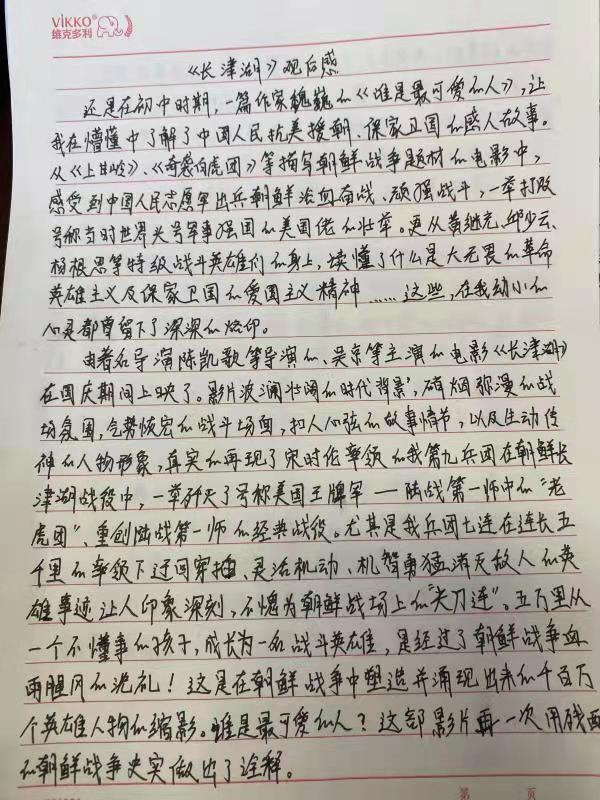 VIKKO
维克多利
《长津湖》观后感
还是在初中时期，一篇作家魏巍的《谁是最可爱的人》，让
我在懵懂中了解了中国人民抗美援朝、保家卫国的感人故事。
从《上甘岭》、《奇袭白虎团》等描写朝鲜战争题材的电影中，
感受到中国人民志愿军出兵朝鲜浴血奋战、顽强战斗，一举打败
号称当时世界头号军事强国的美国佬的壮举。更从黄继光、邱少云、
杨根思等特级战斗英雄们的身上，读懂了什么是大无畏的革命
英雄主义及保家卫国的爱国主义精神……这些，在我幼小的
心灵都曾留下了深深的烙印。
由著名导演陈凯歌等导演的、吴京等主演的电影《长津湖》
在国庆期间上映了。影片波澜壮阔的时代背景，硝烟弥漫的战
场氛围，气势恢宏的战斗场面，扣人心弦的故事情节，以及生动传
神的人物形象，真实的再现了宋时伦率领的我第九兵团在朝鲜长
津湖战役中，一举歼灭了号称美国王牌军——陆战第一师中的“老
虎团”、重创陆战第一师的经典战役。尤其是我兵团七连在连长五
千里的率领下迂回穿插、灵活机动、机智勇猛消灭敌人的英
雄事迹让人印象深刻，不愧为朝鲜战场上的“尖刀连”。五万里从
一个不懂事的孩子，成长为一名战斗英雄，是经过了朝鲜战争血
雨腥风的洗礼！这是在朝鲜战争中塑造并涌现出来的千百万
个英雄人物的缩影。谁是最可爱的人？这部影片再一次用残酷
的朝鲜战争史实做出了诠释。
第 页